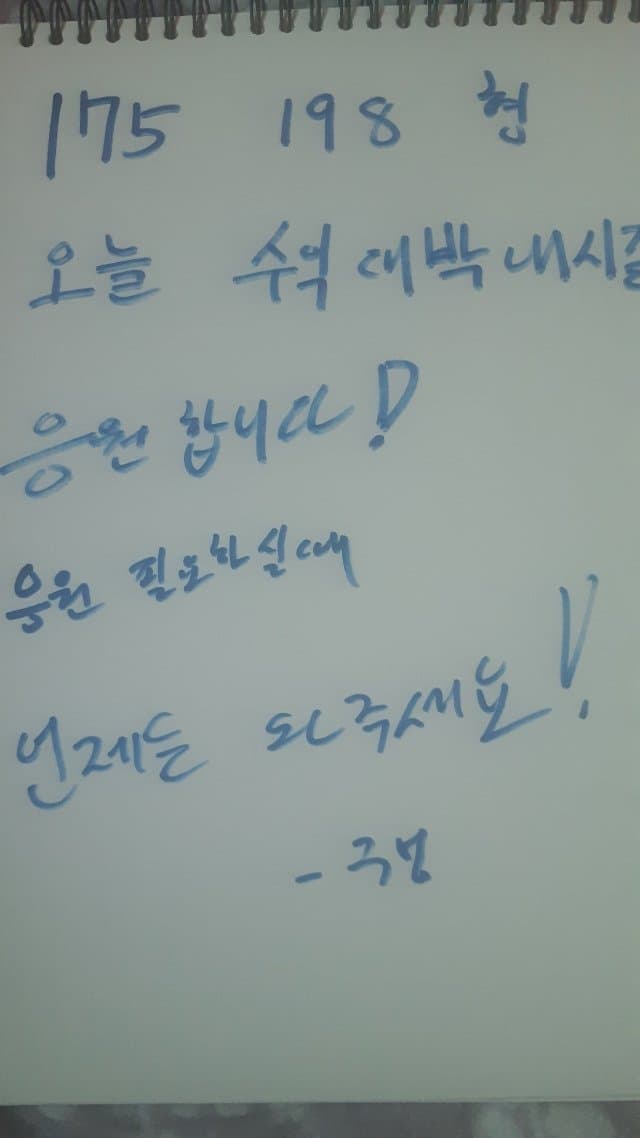 175 198 형
오늘 수익 대박 내시길
응원 합니다!
응원 필요하실때
언제든 와주세요!